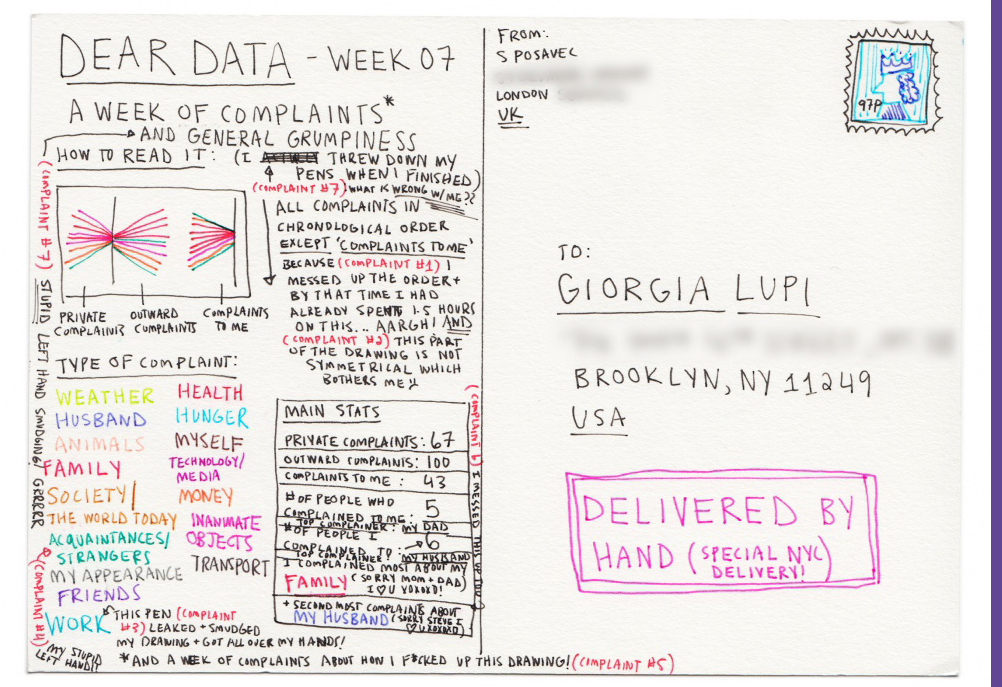 DEAR DATA - WEEK 07
A WEEK OF COMPLAINTS*
AND GENERAL GRUMPINESS
HOW TO READ IT: (I THREW DOWN MY
PENS WHEN I FINISHED)
(COMPLAINT #7) WHAT IS WRONG W/ME??
ALL COMPLAINTS IN
CHRONOLOGICAL ORDER
EXCEPT 'COMPLAINTS TO ME'
BECAUSE (COMPLAINT #1) I
MESSED UP THE ORDER +
BY THAT TIME I HAD
ALREADY SPENT 1.5 HOURS
ON THIS... AARGH! AND
(COMPLAINT #2) THIS PART
OF THE DRAWING IS NOT
SYMMETRICAL WHICH
BOTHERS ME!!
PRIVATE
COMPLAINTS
OUTWARD
COMPLAINTS
COMPLAINTS
TO ME
(COMPLAINT #7) STUPID LEFT HAND SMUDGING! GRRRRR
TYPE OF COMPLAINT:
WEATHER
HUSBAND
ANIMALS
FAMILY
SOCIETY/
THE WORLD TODAY
ACQUAINTANCES/
STRANGERS
MY APPEARANCE
FRIENDS
WORK
HEALTH
HUNGER
MYSELF
TECHNOLOGY/
MEDIA
MONEY
INANIMATE
OBJECTS
TRANSPORT
MAIN STATS
PRIVATE COMPLAINTS: 67
OUTWARD COMPLAINTS: 100
COMPLAINTS TO ME: 43
# OF PEOPLE WHO
COMPLAINED TO ME: 5
TOP COMPLAINER: MY DAD
# OF PEOPLE I
COMPLAINED TO: 6
TOP COMPLAINEE: MY HUSBAND
I COMPLAINED MOST ABOUT MY
FAMILY (SORRY MOM + DAD)
I ♡ U XOXOXO!
+ SECOND MOST COMPLAINTS ABOUT
MY HUSBAND (SORRY STEVE I
♡ U XOXOXO)
(COMPLAINT 6) I MESSED THIS UP TOO
THIS PEN (COMPLAINT
#3) LEAKED + SMUDGED
MY DRAWING + GOT ALL OVER MY HANDS!
(COMPLAINT #4)
MY STUPID
LEFT HAND!!
*AND A WEEK OF COMPLAINTS ABOUT HOW I F*CKED UP THIS DRAWING! (COMPLAINT #5)
FROM:
S POSAVEC
LONDON
UK
97P
TO:
GIORGIA LUPI
BROOKLYN, NY 11249
USA
DELIVERED BY
HAND (SPECIAL NYC
DELIVERY!)